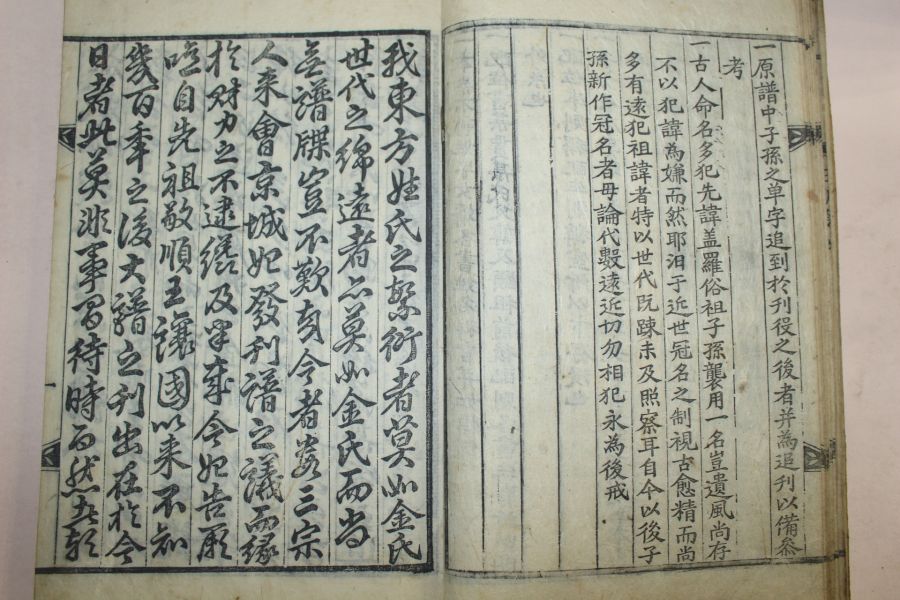 一原譜中子孫之单字追到於刊役之後者并為追刊以備叅
考
一古人命名多犯先諱盖羅俗祖子孫襲用一名豈遺風尚存
不以犯諱為嫌而然耶汨于近世冠名之制視古愈精而尚
多有遠犯祖諱者特以世代既踈未及照察耳自今以後子
孫新作冠名者毋論代數遠近切勿相犯永為後戒
我東方姓氏之繁衍者莫如金氏
世代之綿遠者亦莫如金氏而尚
無譜牒豈不歎哉今者三宗
人来會京城妃發刊譜之議而緣
於財力之不逮及半年今妃告厥
自先祖敬順王讓國以来不知
幾百年之後大譜之刊出在於今
日者此莫非事有待時而然